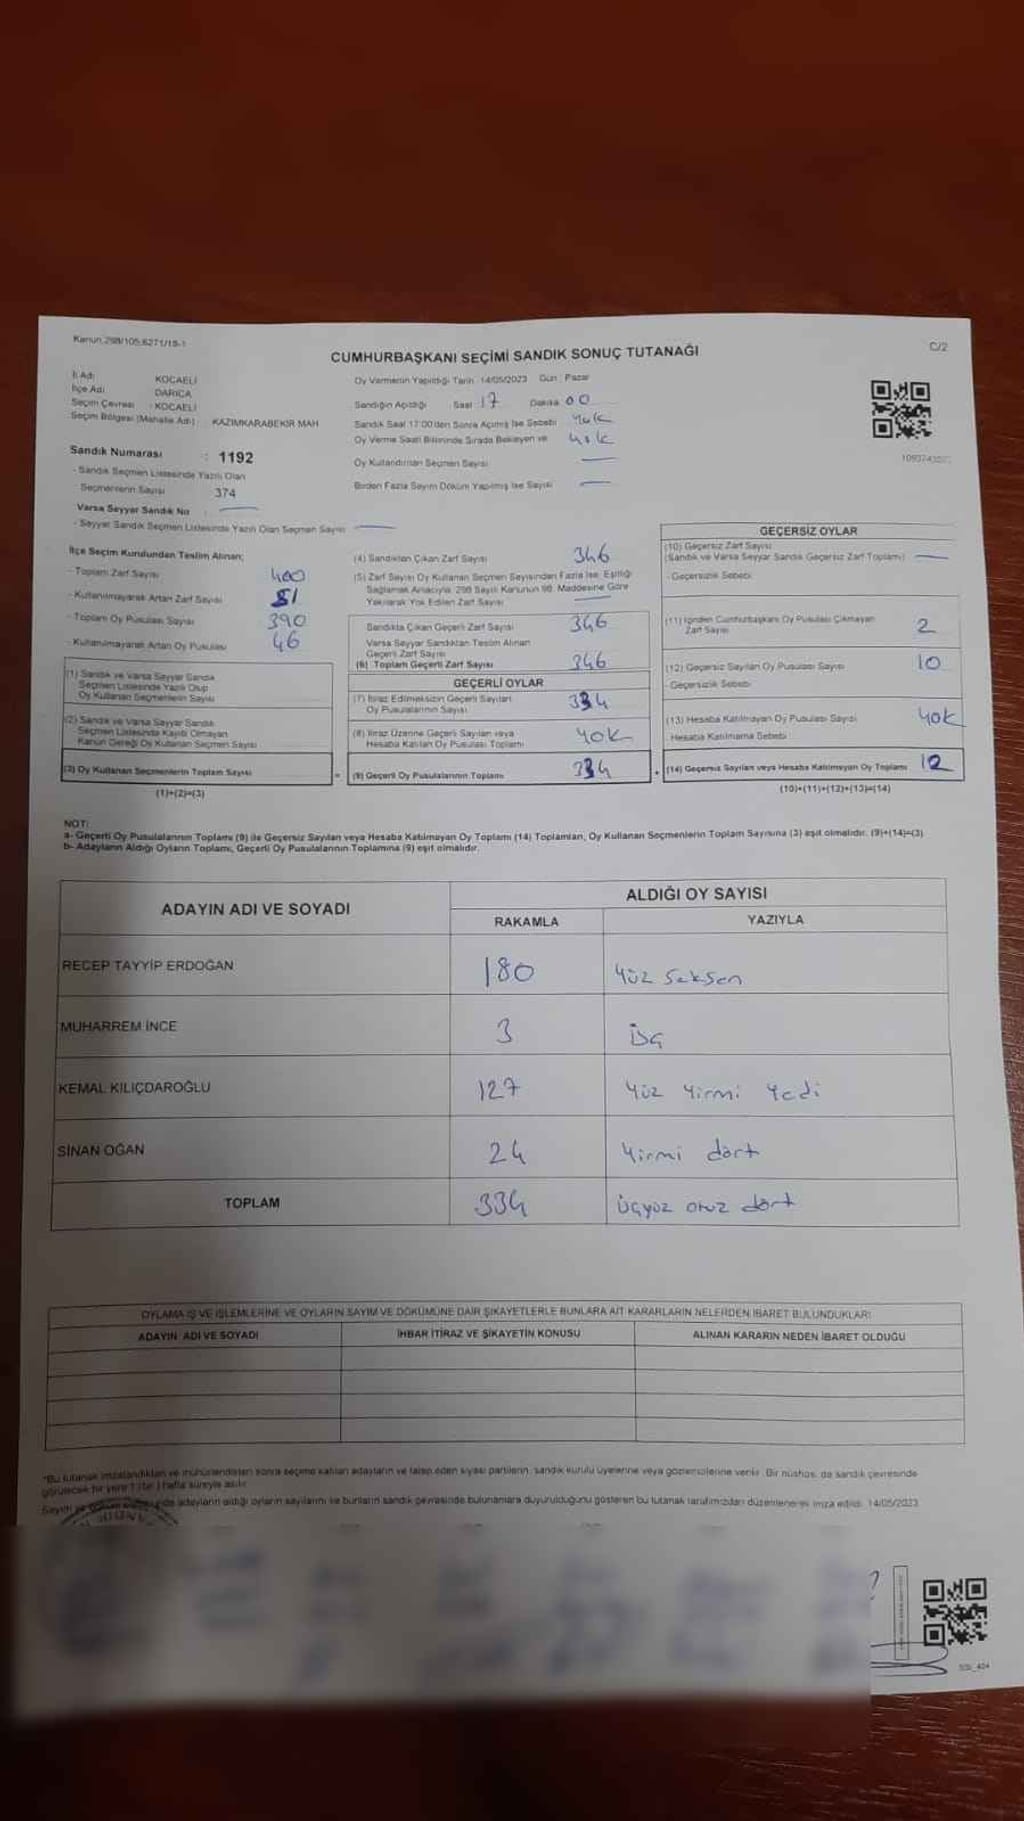 Kanun 298/105;6271/18-1
C/2
CUMHURBAŞKANI SEÇİMİ SANDIK SONUÇ TUTANAĞI
İl Adı KOCAELİ
İlçe Adı DARICA
Seçim Çevresi : KOCAELİ
Seçim Bölgesi (Mahalle Adı) KAZIMKARABEKİR MAH
Sandık Numarası : 1192
- Sandık Seçmen Listesinde Yazılı Olan
Seçmenlerin Sayısı 374
Varsa Seyyar Sandık No
- Seyyar Sandık Seçmen Listesinde Yazılı Olan Seçmen Sayısı
Oy Vermenin Yapıldığı Tarih 14/05/2023 Gün Pazar
Sandığın Açıldığı Saat 17 Dakika 00
Sandık Saat 17:00'den Sonra Açılmış İse Sebebi Yok
Oy Verme Saati Bitiminde Sırada Bekleyen ve Yok
Oy Kullandırılan Seçmen Sayısı
Birden Fazla Sayım Döküm Yapılmış İse Sayısı
İlçe Seçim Kurulundan Teslim Alınan;
- Toplam Zarf Sayısı 400
- Kullanılmayarak Artan Zarf Sayısı 51
- Toplam Oy Pusulası Sayısı 390
- Kullanılmayarak Artan Oy Pusulası 46
(1) Sandık ve Varsa Seyyar Sandık
Seçmen Listesinde Yazılı Olup
Oy Kullanan Seçmenlerin Sayısı
(2) Sandık ve Varsa Seyyar Sandık
Seçmen Listesinde Kaydı Olmayan
Kanun Gereği Oy Kullanan Seçmen Sayısı
(3) Oy Kullanan Seçmenlerin Toplam Sayısı
(1)+(2)=(3)
(4) Sandıktan Çıkan Zarf Sayısı 346
(5) Zarf Sayısı Oy Kullanan Seçmen Sayısından Fazla İse; Eşitliği
Sağlamak Amacıyla, 298 Sayılı Kanunun 98. Maddesine Göre
Yakılarak Yok Edilen Zarf Sayısı
Sandıkta Çıkan Geçerli Zarf Sayısı 346
Varsa Seyyar Sandıktan Teslim Alınan
Geçerli Zarf Sayısı
(6) Toplam Geçerli Zarf Sayısı 346
GEÇERLİ OYLAR
(7) İtiraz Edilmeksizin Geçerli Sayılan
Oy Pusulalarının Sayısı 334
(8) İtiraz Üzerine Geçerli Sayılan veya
Hesaba Katılan Oy Pusulası Toplamı YOK
= (9) Geçerli Oy Pusulalarının Toplamı 334
GEÇERSİZ OYLAR
(10) Geçersiz Zarf Sayısı
(Sandık ve Varsa Seyyar Sandık Geçersiz Zarf Toplamı)
- Geçersizlik Sebebi
(11) İçinden Cumhurbaşkanı Oy Pusulası Çıkmayan
Zarf Sayısı 2
(12) Geçersiz Sayılan Oy Pusulası Sayısı 10
- Geçersizlik Sebebi
(13) Hesaba Katılmayan Oy Pusulası Sayısı YOK
- Hesaba Katılmama Sebebi
+ (14) Geçersiz Sayılan veya Hesaba Katılmayan Oy Toplamı 12
(10)+(11)+(12)+(13)=(14)
NOT:
a- Geçerli Oy Pusulalarının Toplamı (9) ile Geçersiz Sayılan veya Hesaba Katılmayan Oy Toplamı (14) Toplamları, Oy Kullanan Seçmenlerin Toplam Sayısına (3) eşit olmalıdır. (9)+(14)=(3)
b- Adayların Aldığı Oyların Toplamı, Geçerli Oy Pusulalarının Toplamına (9) eşit olmalıdır.
ADAYIN ADI VE SOYADI ALDIĞI OY SAYISI
RAKAMLA YAZIYLA
RECEP TAYYİP ERDOĞAN 180 Yüz Seksen
MUHARREM İNCE 3 Üç
KEMAL KILIÇDAROĞLU 127 Yüz Yirmi Yedi
SİNAN OĞAN 24 Yirmi dört
TOPLAM 334 Üçyüz otuz dört
OYLAMA İŞ VE İŞLEMLERİNE VE OYLARIN SAYIM VE DÖKÜMÜNE DAİR ŞİKAYETLERLE BUNLARA AİT KARARLARIN NELERDEN İBARET BULUNDUKLARI
ADAYIN ADI VE SOYADI İHBAR İTİRAZ VE ŞİKAYETİN KONUSU ALINAN KARARIN NEDEN İBARET OLDUĞU
*Bu tutanak imzalandıktan ve mühürlendikten sonra seçime katılan adayların ve talep eden siyasi partilerin, sandık kurulu üyelerine veya gözlemcilerine verilir. Bir nüshası da sandık çevresinde
görülecek bir yere 1 (bir) hafta süreyle asılır.
Sayım adayların aldığı oyların sayılarını ve bunların sandık çevresinde bulunanlara duyurulduğunu gösteren bu tutanak tarafımızdan düzenlenerek imza edildi. 14/05/2023